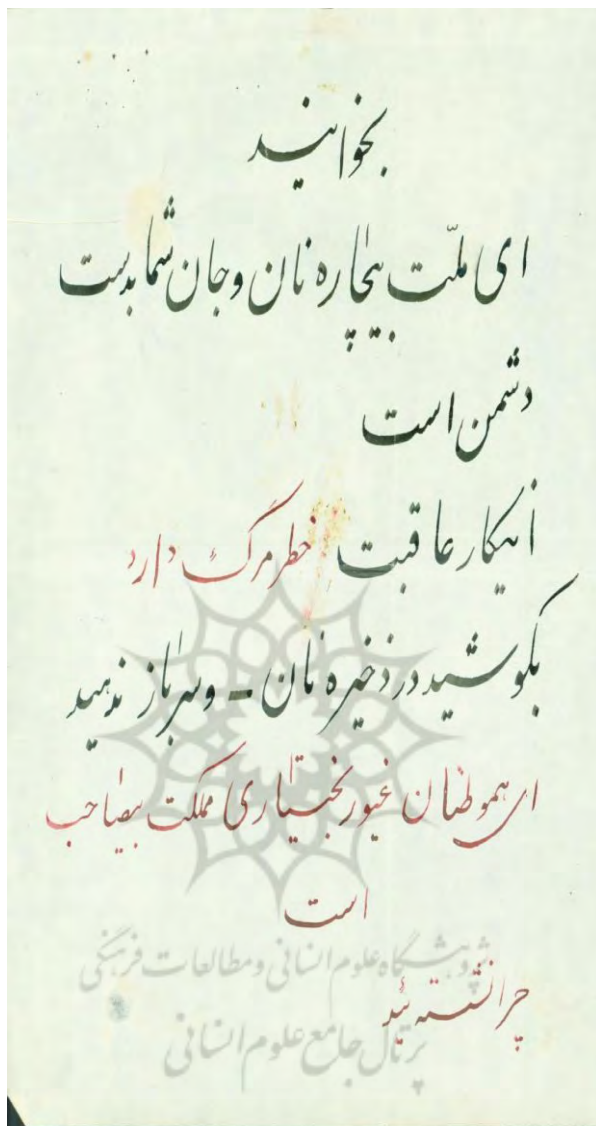 بخوانید
ای ملّت بیچاره نان و جان شما بدست
دشمن است
اینکار عاقبت خطر مرگ دارد
بکوشید در ذخیره نان – و سرباز ندهید
ای هموطنان غیور بختیاری مملکت بیصاحب
است
پژوهشگاه علوم انسانی و مطالعات فرهنگی
چرا نشسته‌ئید
پرتال جامع علوم انسانی